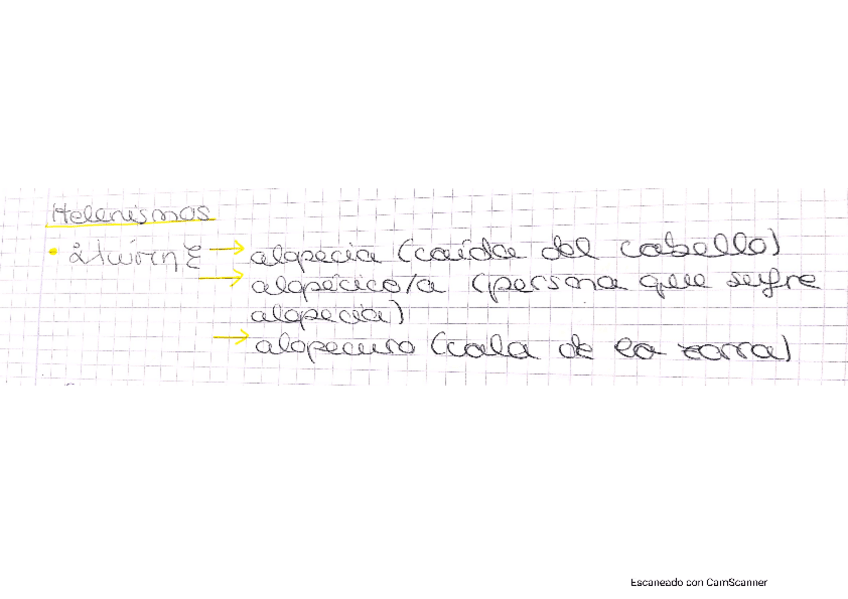 Helenismos
• ἀλώπηξ → alopecia (caída del cabello)
→ alopécico/a (persona que sufre
alopecia)
→ alopecuro (cola de la zorra)
Escaneado con CamScanner